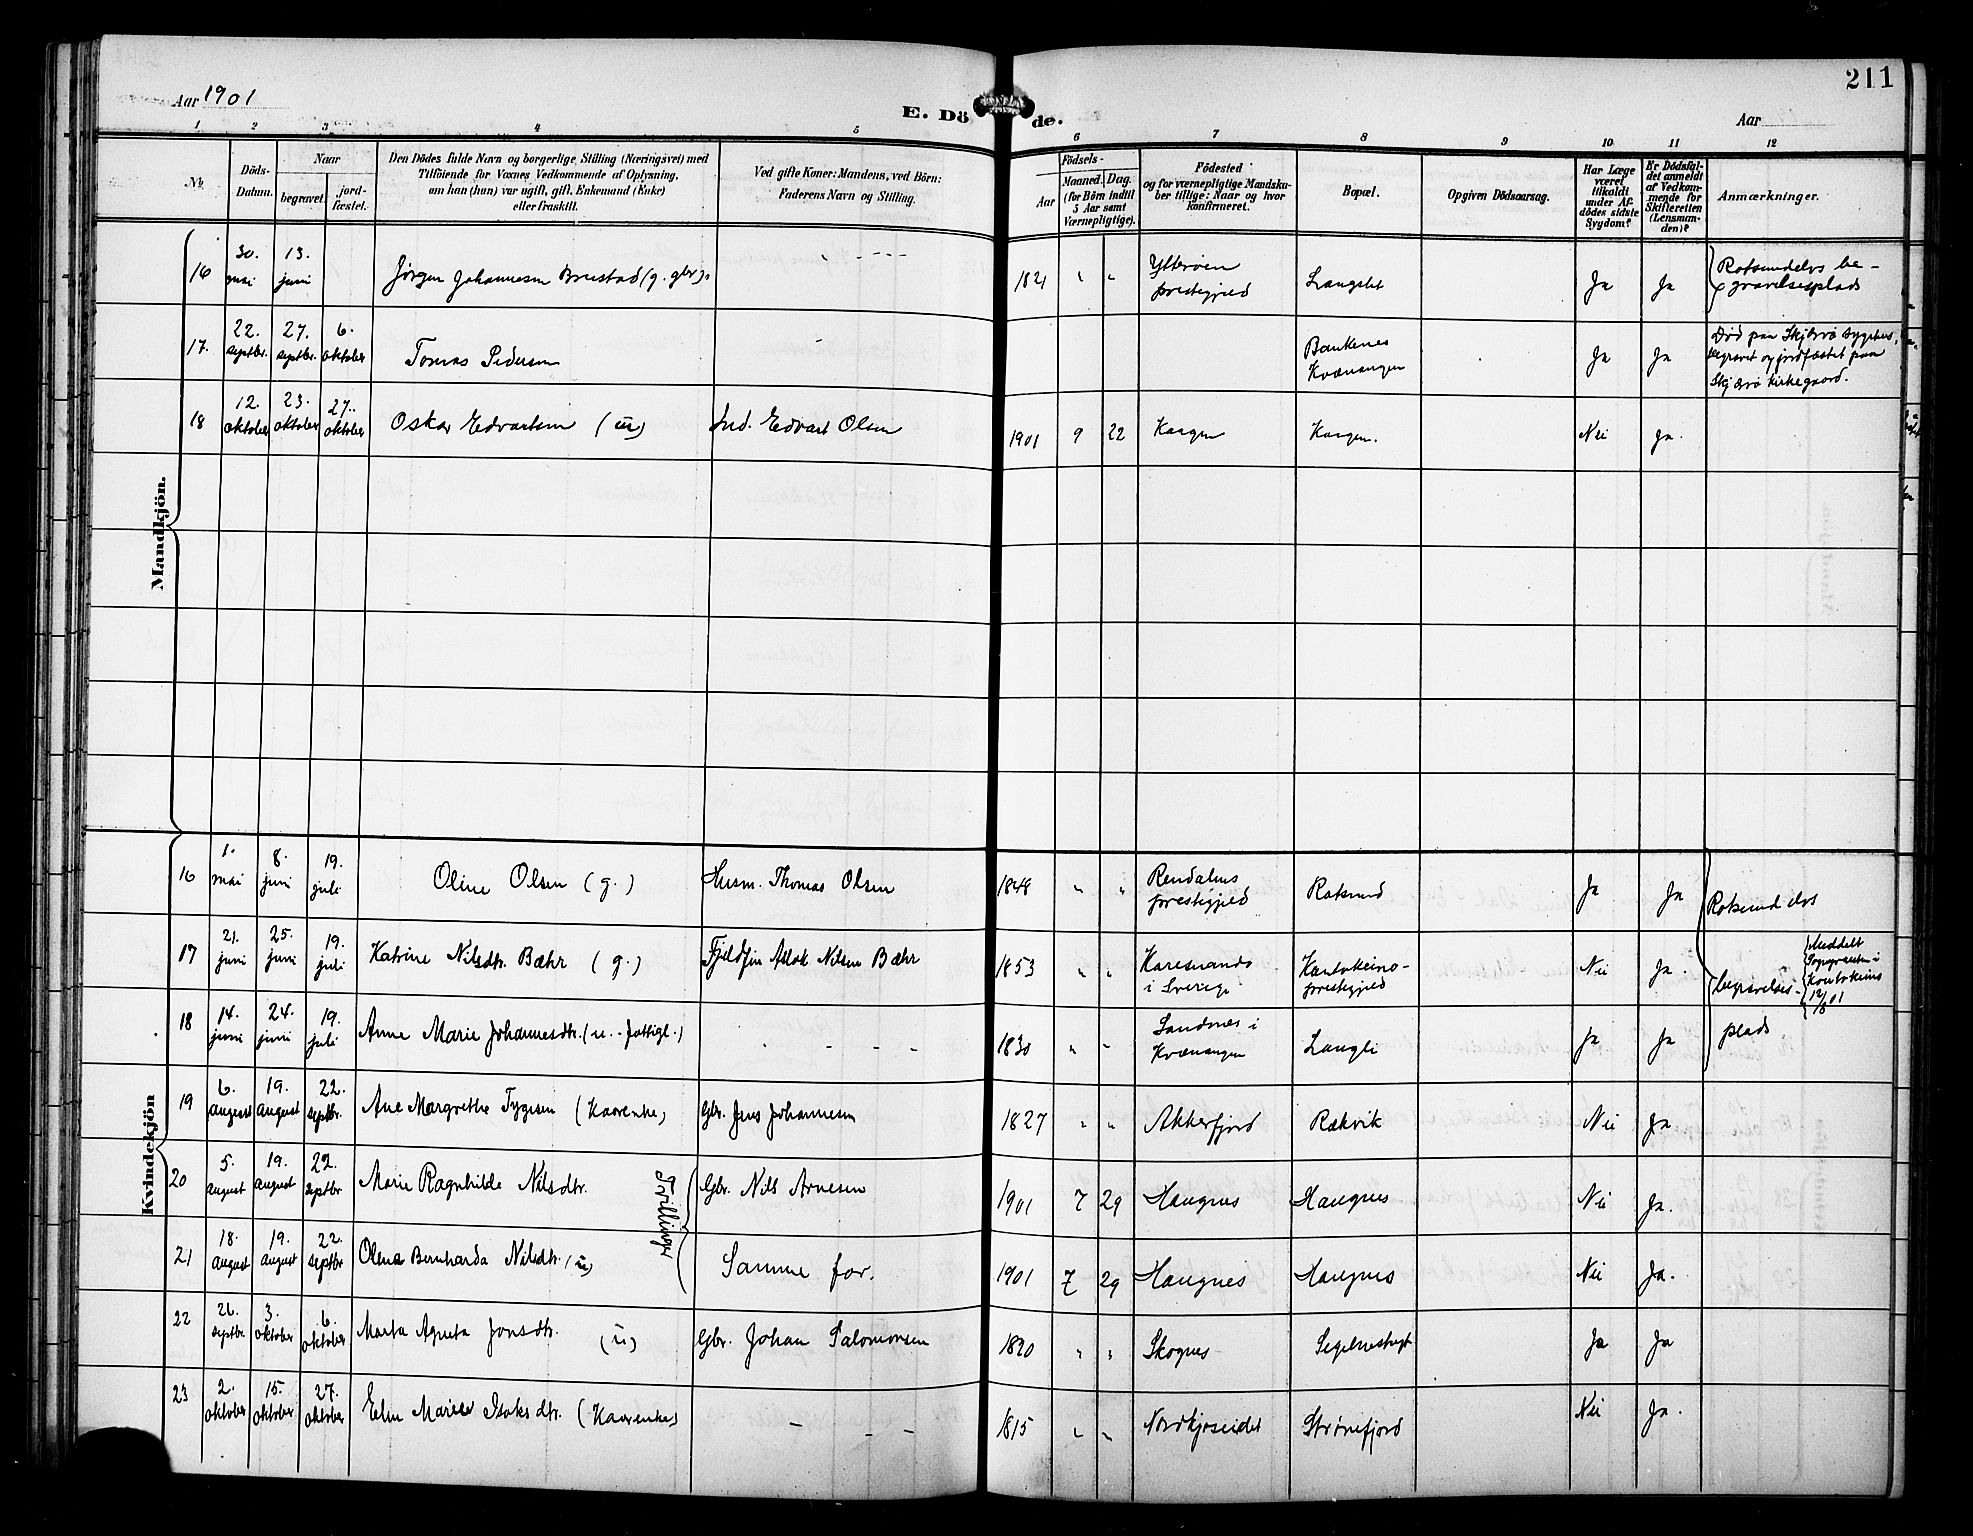 211
Aar 1901
E. Döde.
Aar
1 2 3 4 5 6 7 8 9 10 11 12
No.
Döds-
Datum.
Naar
begravet.
jord-
fæstet.
Den Dödes fulde Navn og borgerlige Stilling (Næringsvei) med
Tilföiende for Voxnes Vedkommende af Oplysning,
om han (hun) var ugift, gift, Enkemand (Enke)
eller fraskilt.
Ved gifte Koner: Mandens, ved Börn:
Faderens Navn og Stilling.
Födsels-
Aar
Maaned. Dag.
(for Börn indtil
5 Aar samt
Værnepligtige).
Födested
og for værnepligtige Mandska-
ber tillige: Naar og hvor
konfirmeret.
Bopæl.
Opgiven Dödsaarsag.
Har Læge
været
tilkaldt
under Af-
dödes sidste
Sygdom?
Er Dödsfal-
det anmeldt
af Vedkom-
mende for
Skifteretten
(Lensman-
den)?
Anmærkninger.
Mandkjön.
16 30. mai 13. juni Jørgen Johannesen Brustad (g. gbr). 1821 " " Ytterøen prestegjeld Langslet Ja Ja Rotsundelvs be-
gravelsesplads
17. 22. septbr. 27. septbr. 6. oktober Tomas Pedersen Bankenes Kvænangen Ja Ja Død paa Skjervø sygehus,
begravet og jordfæstet paa
Skjervø kirkegaard.
18 12. oktober 23. oktober 27. oktober Oskar Edvartsen (u) Ind. Edvart Olsen 1901 9 22 Kaagen Kaagen. Nei Ja.
Kvindekjön
16 1. mai 8. juni 19. juli Oline Olsen (g.) Husm. Thomas Olsen 1848 " " Rendalens prestegjeld Rotsund Ja Ja Rotsundelvs
17 21. juni 25. juni 19. juli Katrine Nilsdtr. Bæhr (g.) Fjeldfin Aslak Nilsen Bæhr 1853 " " Karesuando i Sverige Kautokeino- prestegjeld Nei Ja. begravelses-
Meddelt
Sognepresten i
Kautokeino
12/8 01
18 14. juni 24. juni 19. juli Anne Marie Johannesdtr. (u. - fattigl.) - - - 1830 " " Sandnes i Kvænangen Langli Ja Ja plads
19 6. august 19. august 22. septbr. Ane Margrethe Tygesen (Kaarenke) Gbr. Jens Johannesen 1827 " " Akkerfjord Rækvik Nei Ja
20 5. august 19. august 22. septbr Marie Ragnhilde Nilsdtr. Gbr. Nils Arnesen 1901 7 29 Haugnes Haugnes Nei Ja.
Trillinger
21 18. august 19. august 22. septbr Olena Bernharda Nilsdtr. (u) Samme far. 1901 7 29 Haugnes Haugnes Nei Ja.
22 26. septbr. 3. oktober 6. oktober Marta Agneta Jonsdtr. (u) Gbr. Johan Salomonsen 1820 " " Skognes Segelnesbugt Ja Ja
23 2. oktober 15. oktober 27. oktober Elen Marie Isaksdtr. (Kaarenke) - - - 1815 " " Nordkjoseidet Strømfjord Nei Ja.